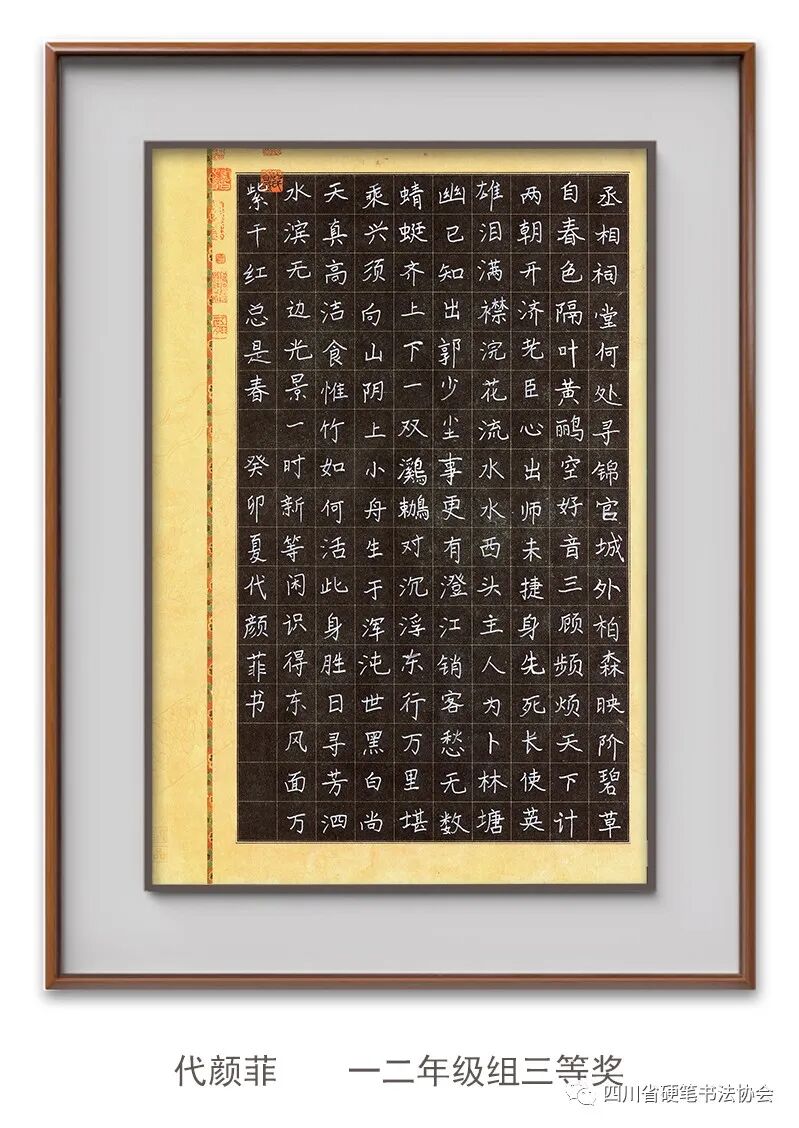 丞相祠堂何处寻锦官城外柏森映阶碧草
自春色隔叶黄鹂空好音三顾频烦天下计
两朝开济老臣心出师未捷身先死长使英
雄泪满襟浣花流水水西头主人为卜林塘
幽已知出郭少尘事更有澄江销客愁无数
蜻蜓齐上下一双鸂鶒对沉浮东行万里堪
乘兴须向山阴上小舟生于浑沌世黑白尚
天真高洁食惟竹如何活此身胜日寻芳泗
水滨无边光景一时新等闲识得东风面万
紫千红总是春 癸卯夏代颜菲书
代颜菲 一二年级组三等奖
四川省硬笔书法协会